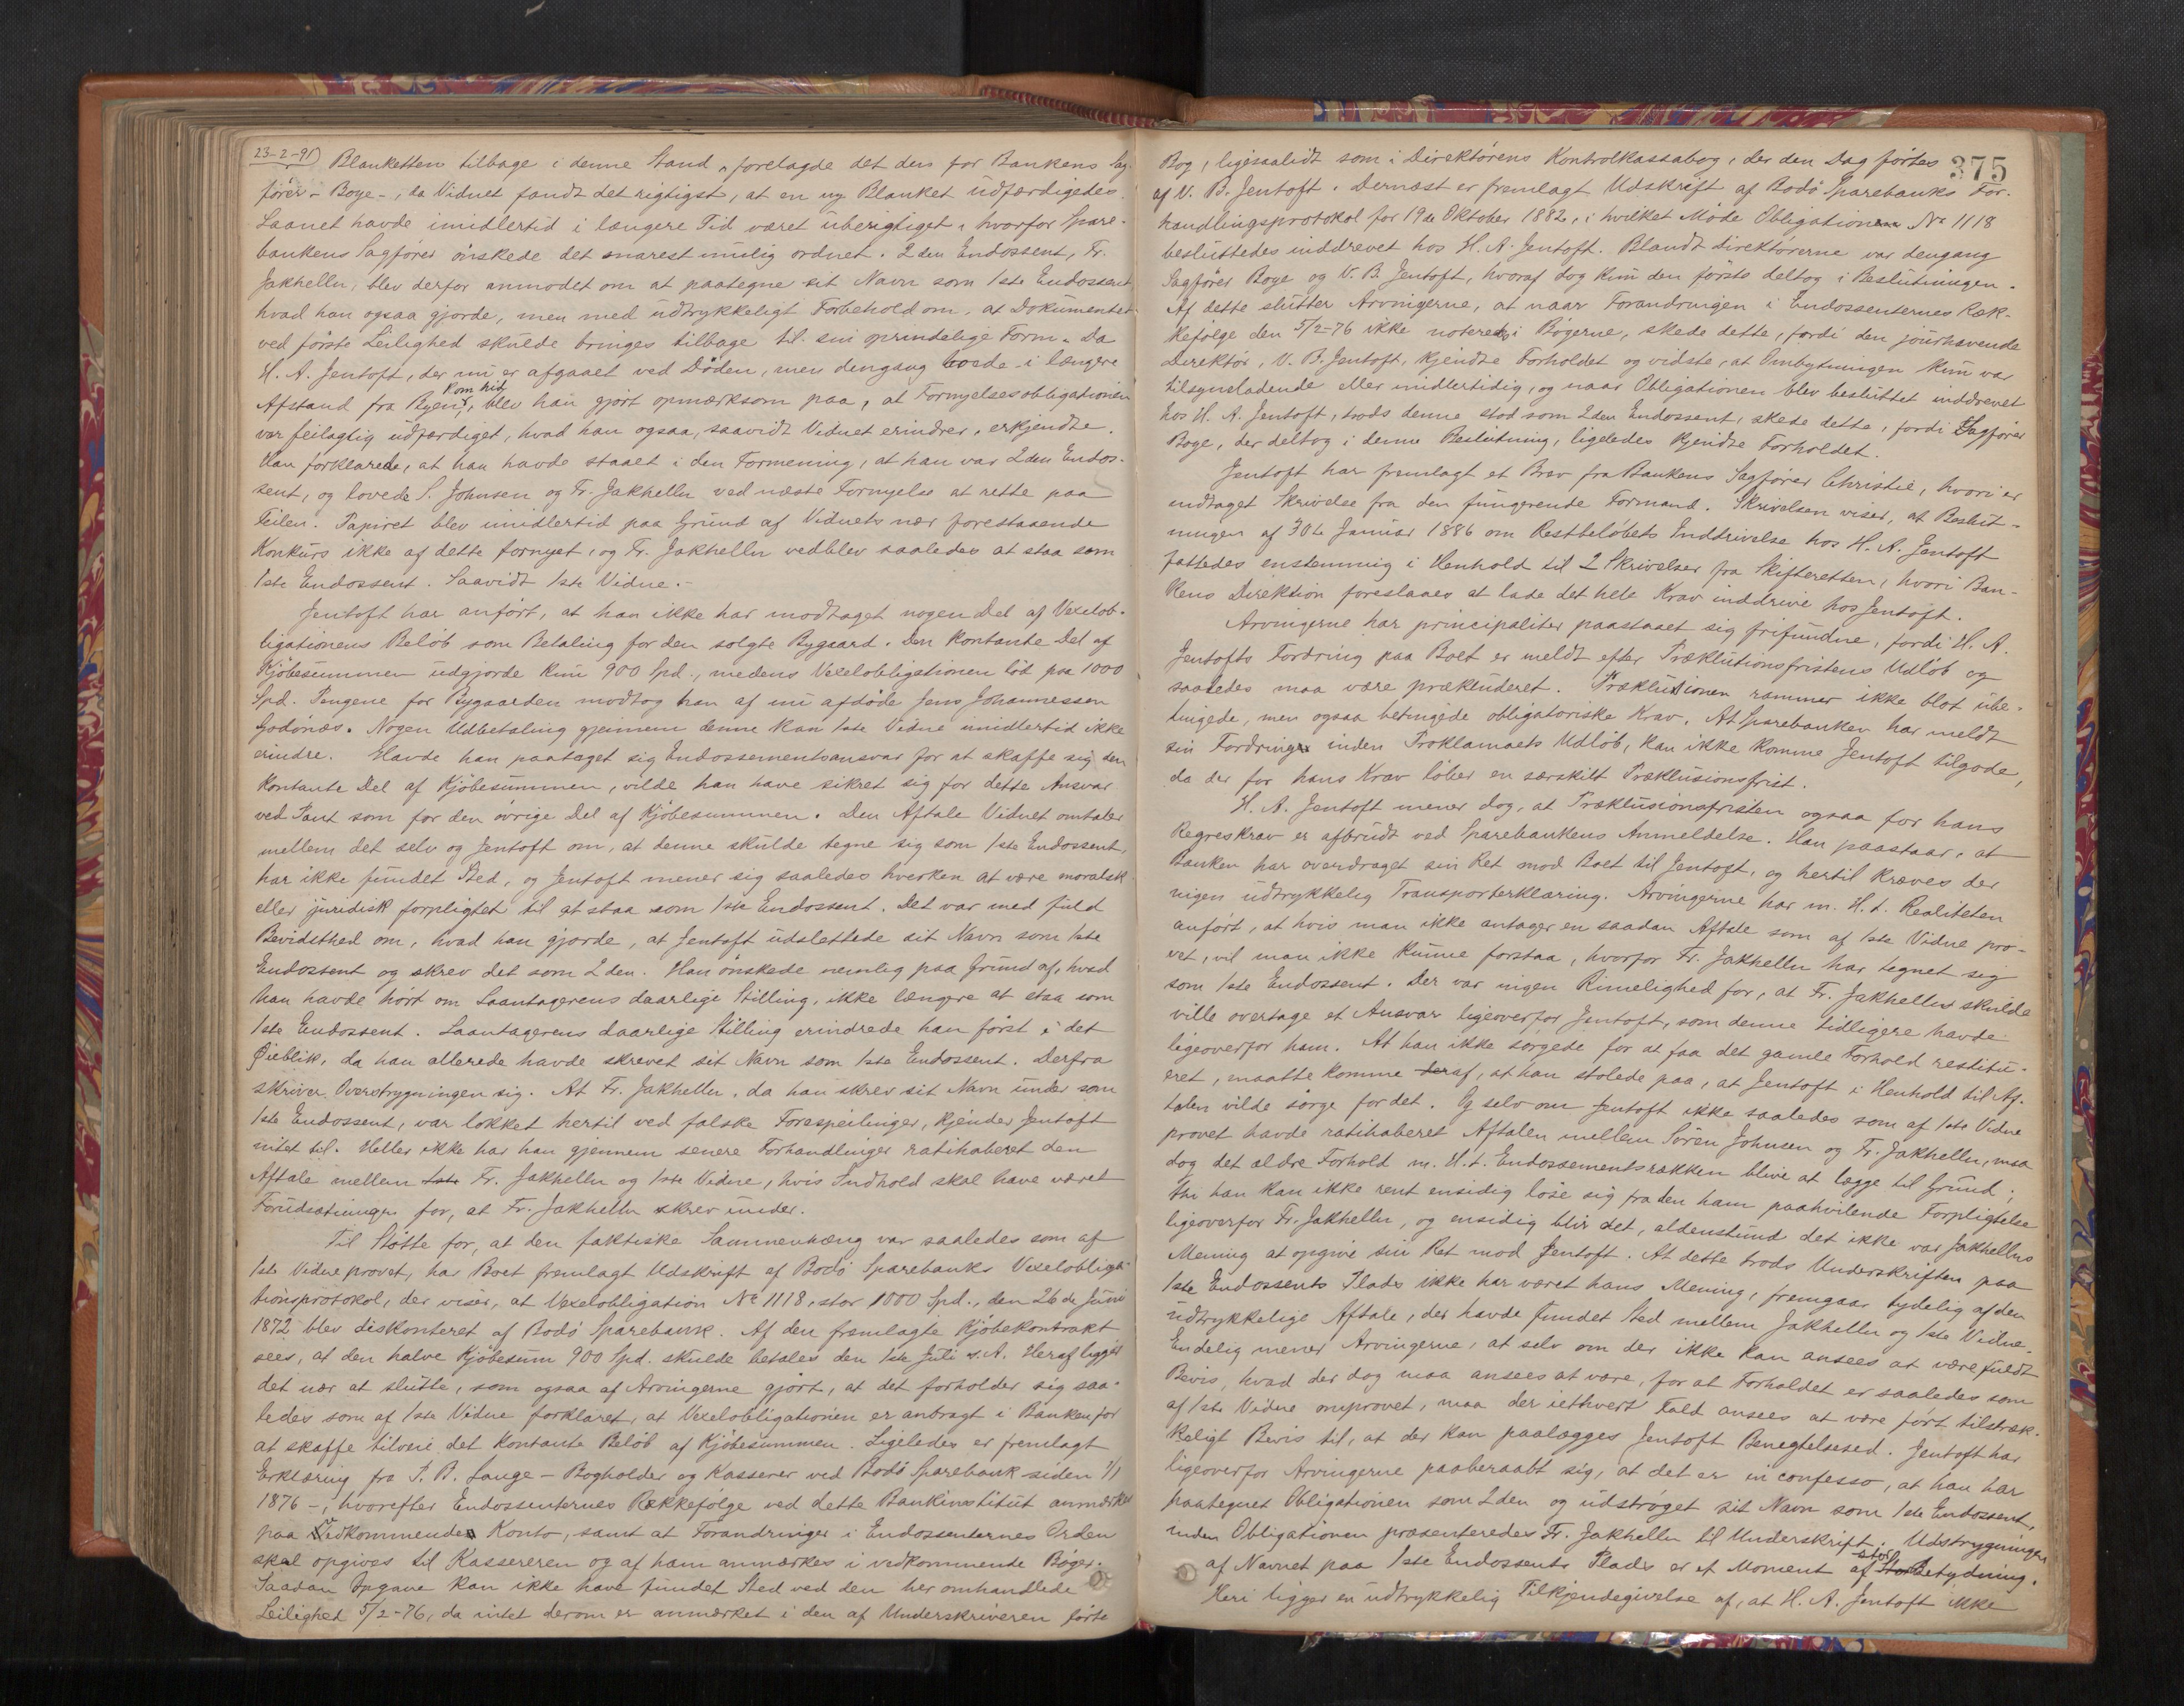 23-2-91) Blanketten tilbage i denne Stand, forelagde det den for Bankens Sag-
fører - Boye -, da Vidnet fandt det rigtigst, at en ny Blanket udfærdigedes.
Laanet havde imidlertid i længere Tid været uberigtiget, hvorfor Spare-
bankens Sagfører ønskede det snarest mulig ordnet. 2den Endossent, Fr.
Jakhelln, blev derfor anmodet om at paategne sit Navn som 1ste Endossent
hvad han ogsaa gjorde, men med udtrykkeligt Forbehold om, at Dokumentet
ved første Leilighed skulde bringes tilbage til sin oprindelige Form. Da
H. A. Jentoft, der nu er afgaaet ved Døden, men dengang boede i længere
Afstand fra Byen, kom hid, blev han gjort opmærksom paa, at Fornyelsesobligationen
var feilagtig udfærdiget, hvad han ogsaa, saavidt Vidnet erindrer, erkjendte.
Han forklarede, at han havde staaet i den Formening, at han var 2den Endos-
sent, og lovede S. Johnsen og Fr. Jakhelln ved næste Fornyelse at rette paa
Feilen. Papiret blev imidlertid paa Grund af Vidnets nær forestaaende
Konkurs ikke af dette fornyet, og Fr. Jakhelln vedblev saaledes at staa som
1ste Endossent. Saavidt 1ste Vidne.-
Jentoft har anført, at han ikke har modtaget nogen Del af Vexelob-
ligationens Beløb som Betaling for den solgte Bygaard. Den kontante Del af
Kjøbesummen udgjorde kun 900 Spd., medens Vexelobligationen lød paa 1000
Spd. Pengene for Bygaarden modtog han af nu afdøde Jens Johannessen
Godønæs. Nogen Udbetaling gjennem denne kan 1ste Vidne imidlertid ikke
erindre. Havde han paataget sig Endossementsansvar for at skaffe sig den
kontante Del af Kjøbesummen, vilde han have sikret sig for dette Ansvar
ved Pant som for den øvrige Del af Kjøbesummen. Den Aftale Vidnet omtaler
mellem det selv og Jentoft om, at denne skulde tegne sig som 1ste Endossent,
har ikke fundet Sted, og Jentoft mener sig saaledes hverken at være moralsk
eller juridisk forpligtet til at staa som 1ste Endossent. Det var med fuld
Bevidsthed om, hvad han gjorde, at Jentoft udslettede sit Navn som 1ste
Endossent og skrev det som 2den. Han ønskede nemlig paa Grund af, hvad
han havde hørt om Laantagerens daarlige Stilling, ikke længere at staa som
1ste Endossent. Laantagerens daarlige Stilling erindrede han først i det
Øieblik, da han allerede havde skrevet sit Navn som 1ste Endossent. Derfra
skriver Overstrygningen sig. At Fr. Jakhelln, da han skrev sit Navn under som
1ste Endossent, var lokket hertil ved falske Forespeilinger, kjender Jentoft
intet til. Heller ikke har han gjennem senere Forhandlinger ratihaberet den
Aftale mellem 1ste Fr. Jakhelln og 1ste Vidne, hvis Indhold skal have været
Forudsætningen for, at Fr. Jakhelln skrev under.
Til Støtte for, at den faktiske Sammenhæng var saaledes som af
1ste Vidne provet, har Boet fremlagt Udskrift af Bodø Sparebanks Vexelobliga-
tionsprotokol, der viser, at Vexelobligation No 1118, stor 1000 Spd., den 26de Juni
1872 blev diskonteret af Bodø Sparebank. Af den fremlagte Kjøbekontrakt
sees, at den halve Kjøbesum 900 Spd. skulde betales den 1ste Juli s. A. Heraf ligger
det nær at slutte, som ogsaa af Arvingerne gjort, at det forholder sig saa-
ledes som af 1ste Vidne forklaret, at Vexelobligationen er anbragt i Banken for
at skaffe tilveie det kontante Beløb af Kjøbesummen. Ligeledes er fremlagt
Erklæring fra P. B. Lange - Bogholder og Kasserer ved Bodø Sparebank siden 1/1
1876 -, hvorefter Endossenternes Rækkefølge ved dette Bankinstitut anmærkes
paa Vedkommendes Konto, samt at Forandringer i Endossenternes Orden
skal opgives til Kassereren og af ham anmærkes i vedkommende Bøger.
Saadan Opgave kan ikke have fundet Sted ved den her omhandlede
Leilighed 5/2-76, da intet derom er anmærket i den af Underskriveren førte
375
Bog, ligesaalidt som i Direktørens Kontrolkassabog, der den Dag førtes
af V. B. Jentoft. Dernæst er fremlagt Udskrift af Bodø Sparebanks For-
handlingsprotokol for 19de Oktober 1882, i hvilket Møde Obligationen No 1118
besluttedes inddrevet hos H. A. Jentoft. Blandt Direktørerne var dengang
Sagfører Boye og V. B. Jentoft, hvoraf dog kun den første deltog i Beslutningen.
Af dette slutter Arvingerne, at naar Forandringen i Endossenternes Ræk-
kefølge den 5/2-76 ikke noteredes i Bøgerne, skede dette, fordi den jourhavende
Direktør, V. B. Jentoft, kjendte Forholdet og vidste, at Ombytningen kun var
tilsyneladende eller midlertidig, og naar Obligationen blev besluttet inddrevet
hos H. A. Jentoft, trods denne stod som 2den Endossent, skede dette, fordi Sagfører
Boye, der deltog i denne Beslutning, ligeledes kjendte Forholdet.
Jentoft har fremlagt et Brev fra Bankens Sagfører Christie, hvori er
indtaget Skrivelse fra den fungerende Formand. Skrivelsen viser, at Beslut-
ningen af 30te Januar 1886 om Restbeløbets Inddrivelse hos H. A. Jentoft
fattedes enstemmig i Henhold til 2 Skrivelser fra Skifteretten, hvori Ban-
kens Direktion foreslaaes at lade det hele Krav inddrive hos Jentoft.
Arvingerne har principaliter paastaaet sig frifundne, fordi H. A.
Jentofts Fordring paa Boet er meldt efter Præklutionsfristens Udløb og
saaledes maa være prækluderet. Præklusionen rammer ikke blot ube-
tingede, men ogsaa betingede obligatoriske Krav. At Sparebanken har meldt
sin Fordring inden Proklamaets Udløb, kan ikke komme Jentoft tilgode,
da der for hans Krav løber en særskilt Præklusionsfrist.
H. A. Jentoft mener dog, at Præklusionsfristen ogsaa for hans
Regreskrav er afbrudt ved Sparebankens Anmeldelse. Han paastaar, at
Banken har overdraget sin Ret mod Boet til Jentoft, og hertil kræves der
ingen udtrykkelig Transporterklæring. Arvingerne har m. H. t. Realiteten
anført, at hvis man ikke antager en saadan Aftale som af 1ste Vidne pro-
vet, vil man ikke kunne forstaa, hvorfor Fr. Jakhelln har tegnet sig
som 1ste Endossent. Der var ingen Rimelighed for, at Fr. Jakhelln skulde
ville overtage et Ansvar ligeoverfor Jentoft, som denne tidligere havde
ligeoverfor ham. At han ikke sørgede for at faa det gamle Forhold restitu-
eret, maatte komme deraf, at han stolede paa, at Jentoft i Henhold til Af-
talen vilde sørge for det. Og selv om Jentoft ikke saaledes som af 1ste Vidne
provet havde ratihaberet Aftalen mellem Søren Johnsen og Fr. Jakhelln, maa
dog det ældre Forhold m. H. t. Endossementsrækken blive at lægge til Grund;
thi han kan ikke rent ensidig løse sig fra den ham paahvilende Forpligtelse
ligeoverfor Fr. Jakhelln, og ensidig blir det, aldenstund det ikke var Jakhellns
Mening at opgive sin Ret mod Jentoft. At dette trods Underskriften paa
1ste Endossents Plads ikke har været hans Mening, fremgaar tydelig af den
udtrykkelige Aftale, der havde fundet Sted mellem Jakhelln og 1ste Vidne.
Endelig mener Arvingerne, at selv om der ikke kan ansees at være fuldt
Bevis, hvad der dog maa ansees at være, for at Forholdet er saaledes som
af 1ste Vidne omprovet, maa der iethvert Fald ansees at være ført tilstræk-
keligt Bevis til, at der kan paalægges Jentoft Benegtelsesed. Jentoft har
ligeoverfor Arvingerne paaberaabt sig, at det er in confesso, at han har
paategnet Obligationen som 2den og udstrøget sit Navn som 1ste Endossent,
inden Obligationen præsenteredes Fr. Jakhelln til Underskrift. Udstrygningen
af Navnet paa 1ste Endossents Plads er et Moment af stor Betydning.
Heri ligger en udtrykkelig Tilkjendegivelse af, at H. A. Jentoft ikke